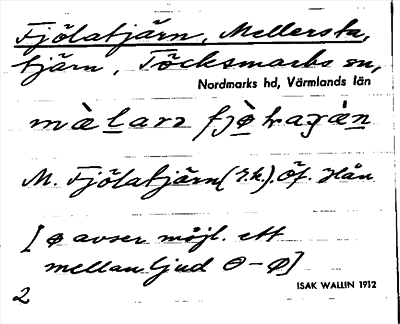 Fjölatjärn, Mellersta,
tjärn, Töcksmarks sn,
Nordmarks hd, Värmlands län
M. Fjölatjärn (g.k.). Öf. Hån
[ø avser möjl. ett
mellanljud ɵ – ø]
2
ISAK WALLIN 1912